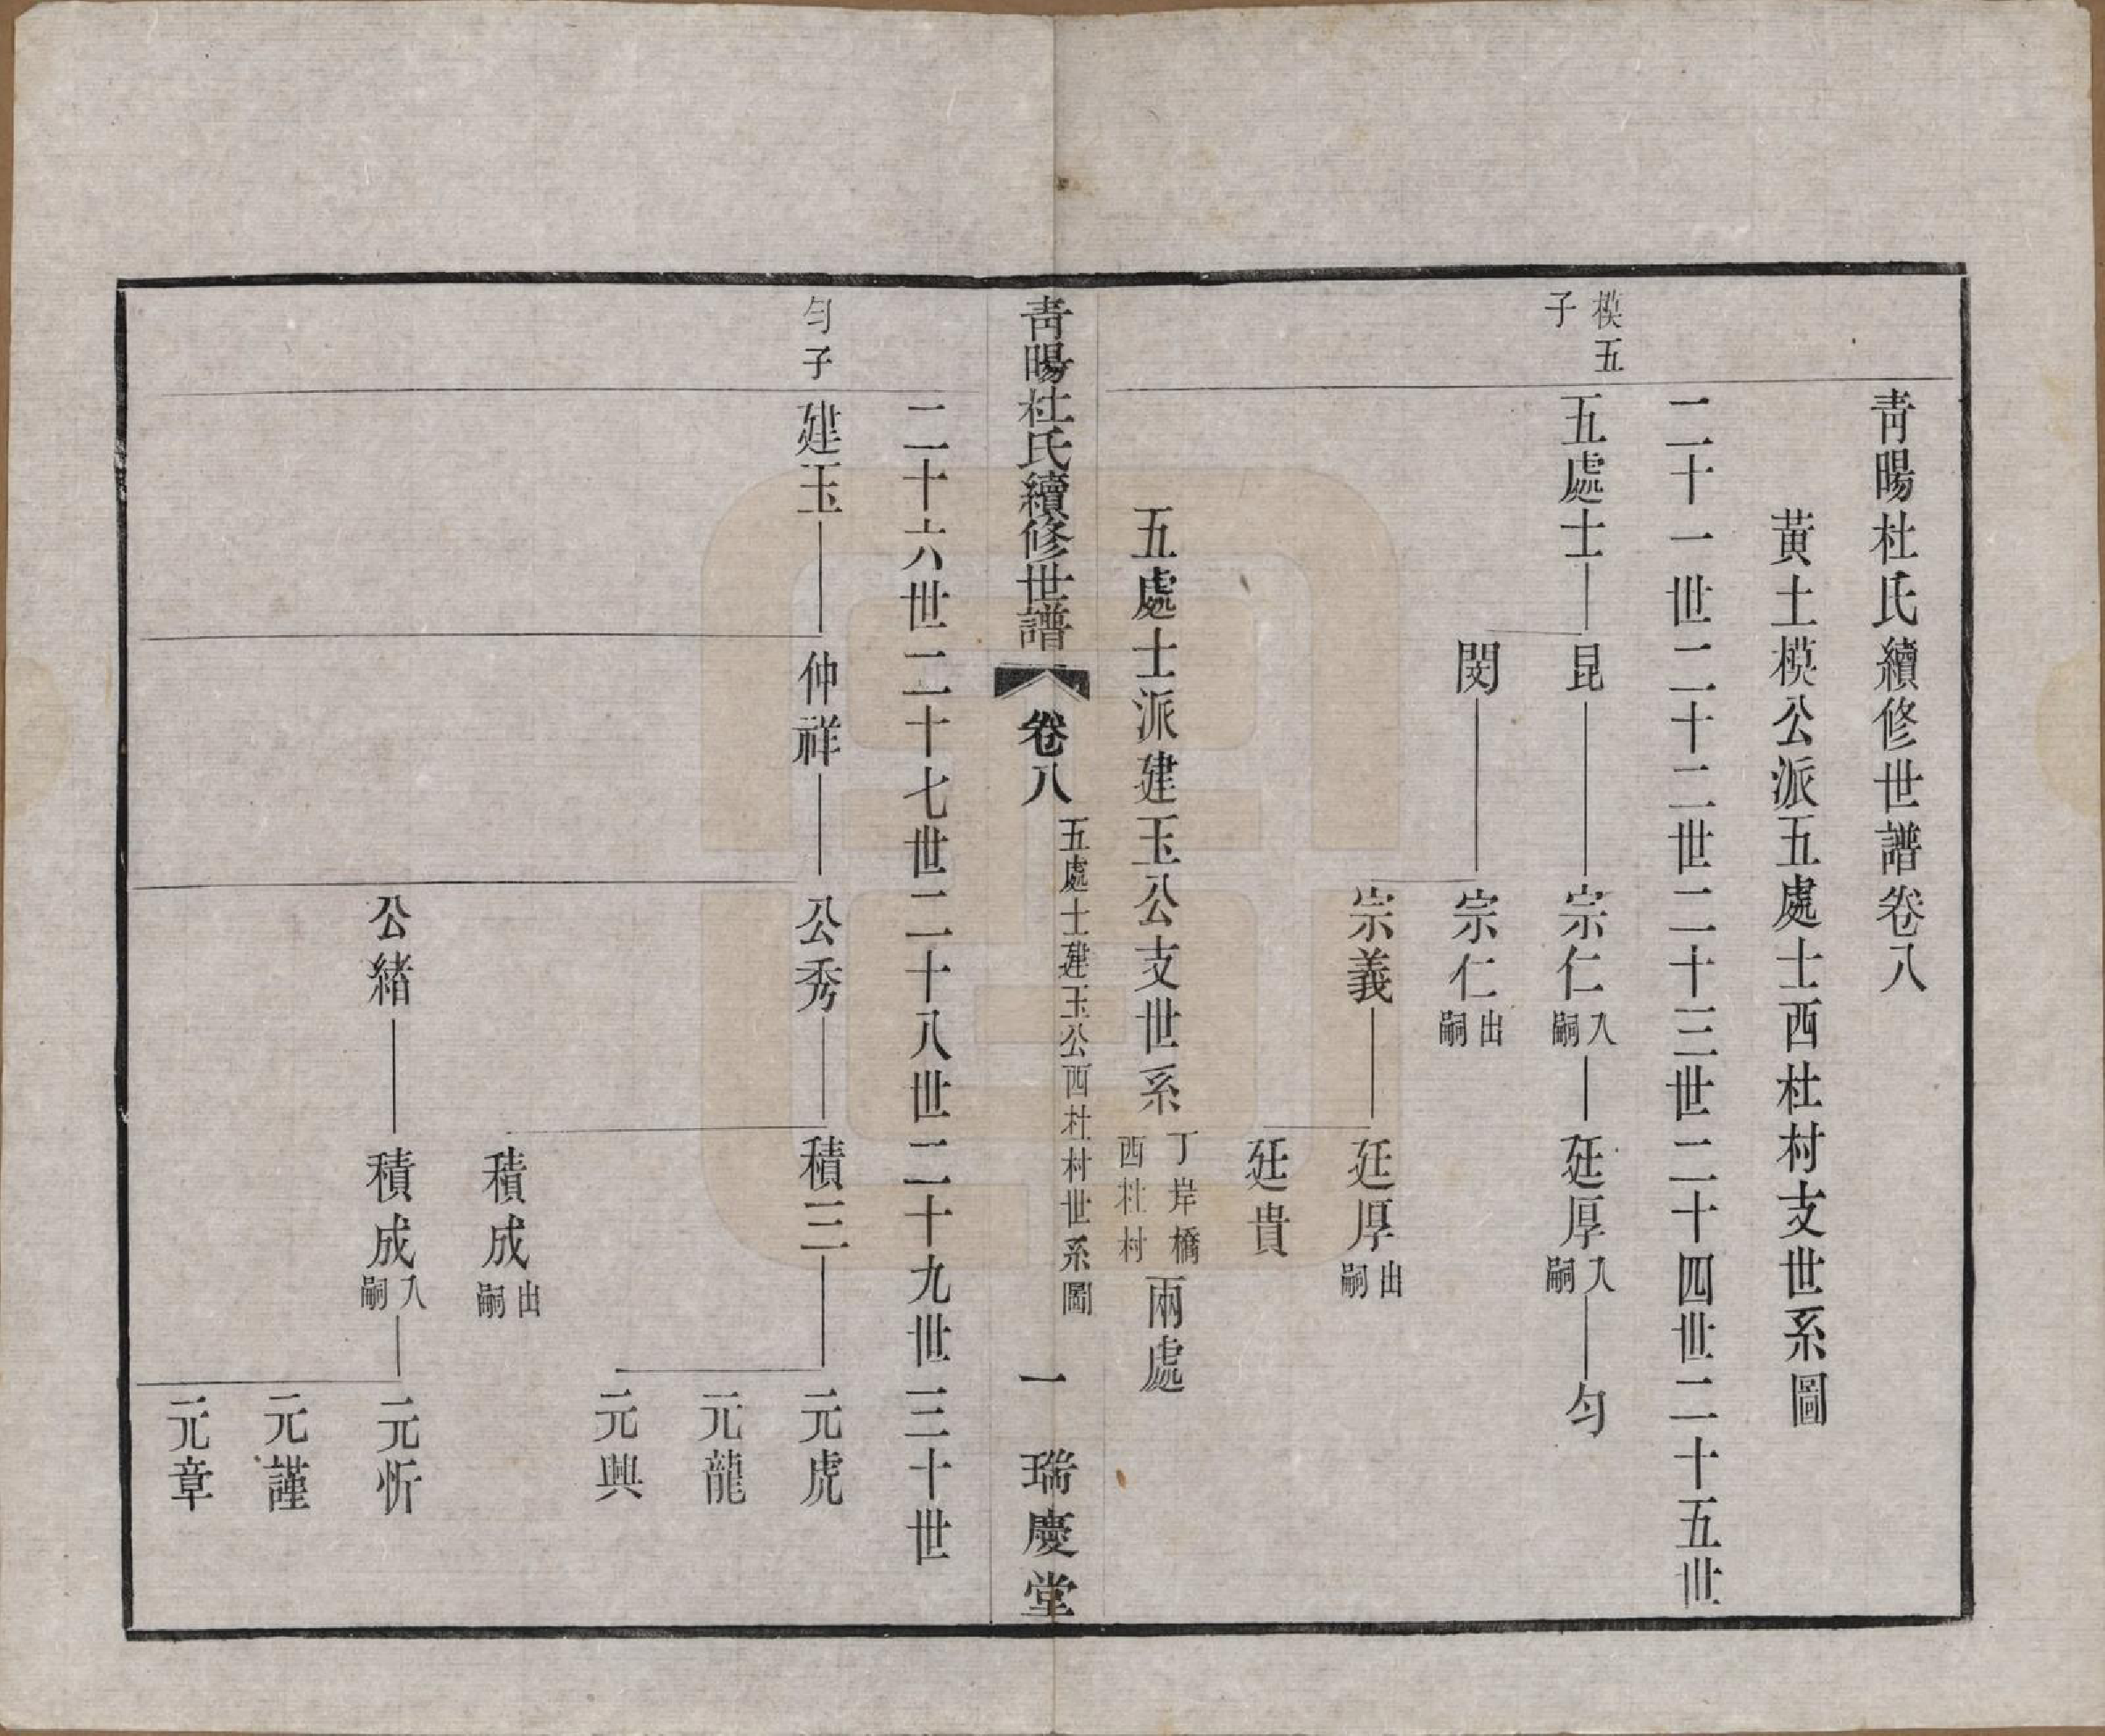 靑暘杜氏續修世譜卷八
黃土模公派五處士西杜村支世系圖
二十一世二十二世二十三世二十四世二十五世
模五
子
五處士
昆
宗仁
入
嗣
廷厚
入
嗣
匀
閔
宗仁
出
嗣
宗義
廷厚
出
嗣
廷貴
五處士派建玉公支世系
丁岸橋
西杜村
兩處
靑暘杜氏續修世譜
卷八
五處士建玉公西杜村世系圖
一
瑞慶堂
二十六世二十七世二十八世二十九世三十世
匀子
建玉
仲祥
公秀
積三
元虎
元龍
元興
積成
出
嗣
公緒
積成
入
嗣
元忻
元謹
元章